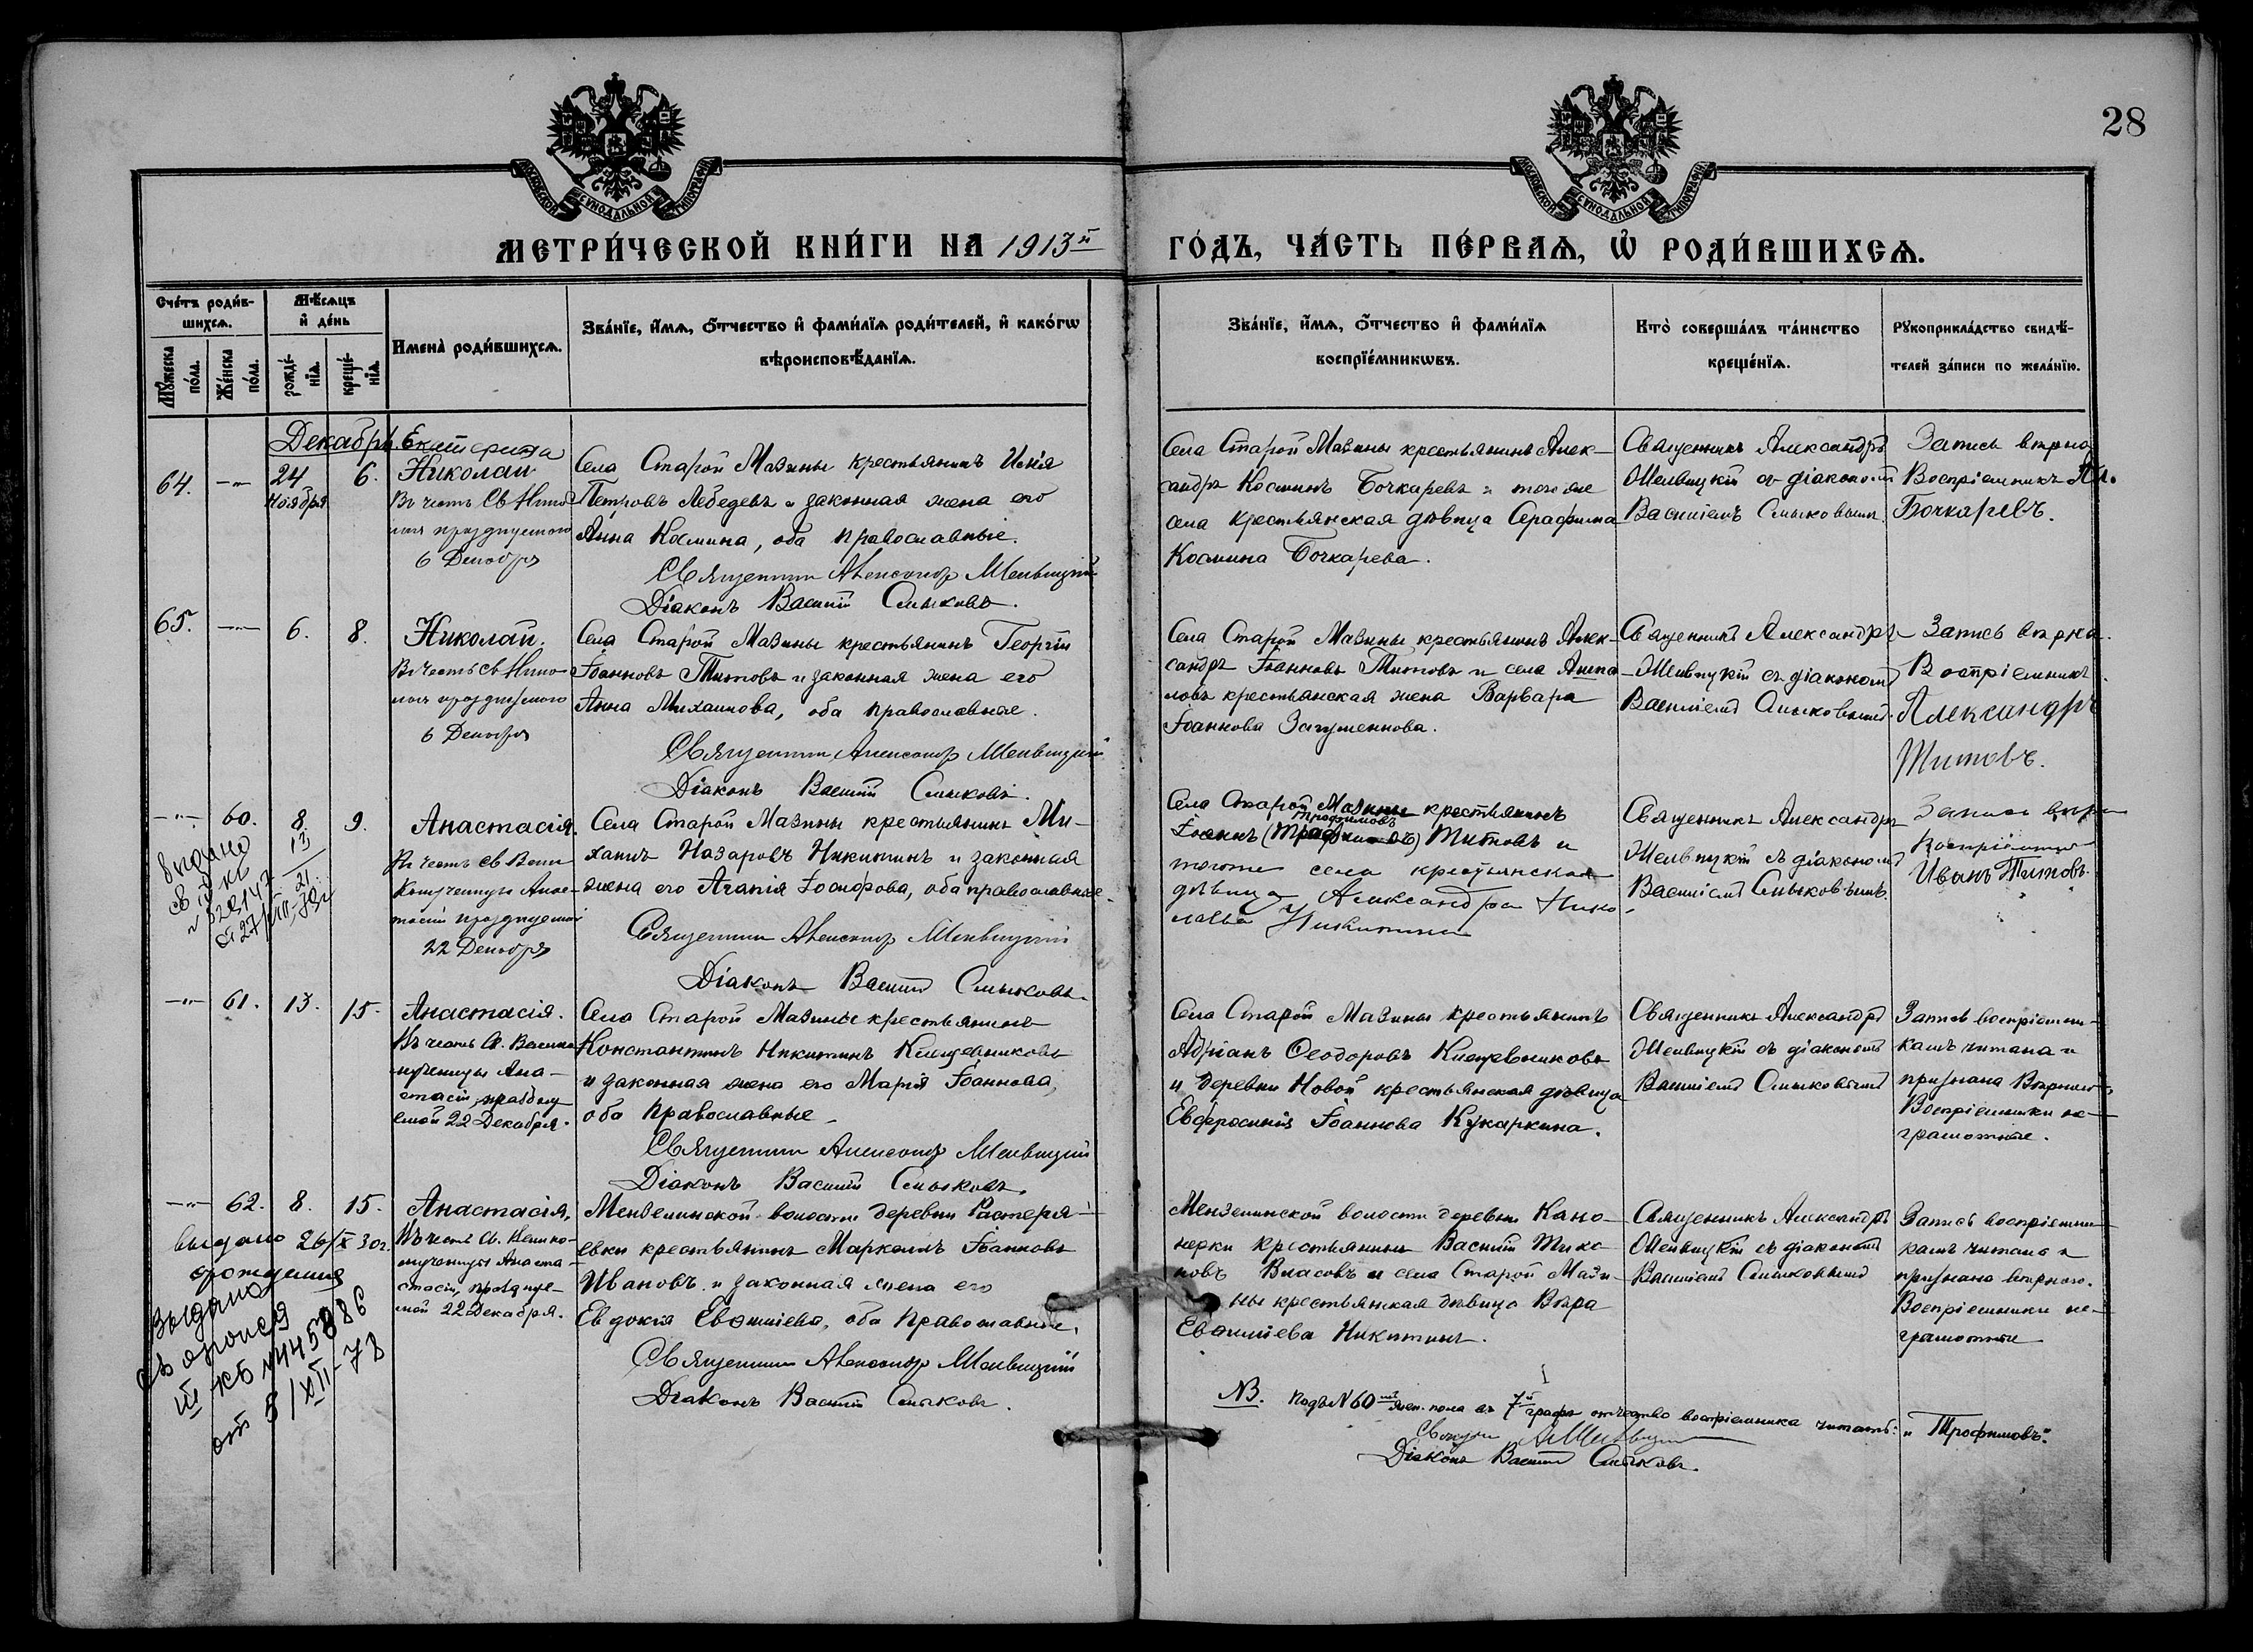 28
МЕТРИ́ЧЕСКОЙ КНИ́ГИ НА 1913й
ГО́ДЪ, ЧА́СТЬ ПЕ́РВАѦ, Ѡ҆ РОДИ́ВШИХСѦ.
Сче́тъ роди́в-
шихсѧ.
Мѣ́сѧцъ
и҆ де́нь
Имена̀ роди́вшихсѧ.
Зва́нїе, и҆́мѧ, ѻ҆́тчество и҆ фами́лїѧ роди́телей, и҆ како́гѡ
вѣроисповѣ́данїѧ.
Мꙋ́жеска по́ла.
Же́нска по́ла.
рожде́-нїѧ.
креще́-нїѧ.
Зва́нїе, и҆́мѧ, ѻ҆́тчество и҆ фами́лїѧ
воспрїе́мникѡвъ.
Кто̀ соверша́лъ та́инство
креще́нїѧ.
Рꙋкоприкла́дство свидѣ́-
телей за́писи по жела́нїю.
Декабрь.
64. -"- 24 6. Николай
Ноября
Въ честь Св Нико
лая празднуемого
6 Декабря
Села Старой Мазины крестьянинъ Илія
Петровъ Лебедевъ и законная жена его
Анна Космина, оба православные.
Священник Александр Мелвицкий
Діаконъ Василій Смыковъ.
Села Старой Мазины крестьянинъ Алек-
сандръ Косминъ Бочкаревъ и того же
села крестьянская дѣвица Серафима
Космина Бочкарева.
Священникъ Александръ
Мелвицкій съ діакономъ
Василіемъ Смыковымъ.
Запись вѣрна
Воспріемникъ Ал.
Бочкаревъ.
65. -"- 6. 8. Николай.
Въ честь св Нико
лая празднуемого
6 Декабря
Села Старой Мазины крестьянинъ Георгій
Іоанновъ Титовъ и законная жена его
Анна Михаилова, оба православные.
Священник Александр Мелвицкий
Діаконъ Василій Смыковъ.
Села Старой Мазины крестьянинъ Алек-
сандръ Іоанновъ Титовъ и села
крестьянская жена Варвара
Іоаннова Загуменнова.
Священникъ Александръ
Мелвицкій съ діакономъ
Василіемъ Смыковымъ.
Запись вѣрна.
Воспріемникъ
Александръ
Титовъ.
-"- 60. 8. 9. Анастасія.
Въ честь св Вели
комученицы Анас-
тасіи празднуемой
22 Декабря
Села Старой Мазины крестьянинъ Ми-
хаилъ Назаровъ Никитинъ и законная
жена его Агапія Іосифова, оба православные.
Священник Александр Мелвицкий
Діаконъ Василій Смыковъ.
Села Старой Мазины крестьянинъ
Трофимовъ
Іоаннъ Титовъ и
того же села крестьянская
дѣвица Александра Нико-
лаева Никитина
Священникъ Александръ
Мелвицкій съ діакономъ
Василіемъ Смыковымъ.
Запись вѣрна
Воспріемникъ
Иванъ Титовъ.
выдано
-"- 61. 13. 15. Анастасія.
Въ честь Св. Велико
мученицы Ана-
стасіи, праздну
емой 22 Декабря.
Села Старой Мазины крестьянинъ
Константинъ Никитинъ Клещевниковъ
и законная жена его Марія Іоаннова,
оба православные.
Священник Александр Мелвицкий
Діаконъ Василій Смыковъ.
Села Старой Мазины крестьянинъ
Адріанъ Ѳеодоровъ Клещевниковъ
и деревни Новой крестьянская дѣвица
Евфросинія Іоаннова Кукаркина.
Священникъ Александръ
Мелвицкій съ діакономъ
Василіемъ Смыковымъ
Запись воспріемни-
камъ читана и
признана вѣрною,
Воспріемники не-
грамотные.
-"- 62. 8. 15. Анастасія,
Въ честь Св. Велико-
мученицы Анаста-
сіи, праздную-
мой 22 Декабря.
Мензелинской волости деревни Растеря-
евки крестьянинъ Маркеллъ Іоанновъ
Ивановъ и законная жена его
Евдокія Евфиміева, оба православные,
Священник Александр Мелвицкий
Діаконъ Василій Смыковъ.
Мензелинской волости деревни Кано-
нерки крестьянинъ Василій Тихо
новъ Власовъ и села Старой Мази-
ны крестьянская дѣвица Вѣра
Евфиміева Никитина.
Священникъ Александръ
Мелвицкій съ діакономъ
Василіемъ Смыковымъ
Запись воспріемни-
камъ читана и
признана вѣрною.
Воспріемники не-
грамотные
выдано 26/X 30г.
Выдано
от 5/XII-73
NB. Подъ N 60мъ жен. пола въ 7й графѣ отчество воспріемника читать: "Трофимовъ".
Діаконъ Василій Смыковъ.